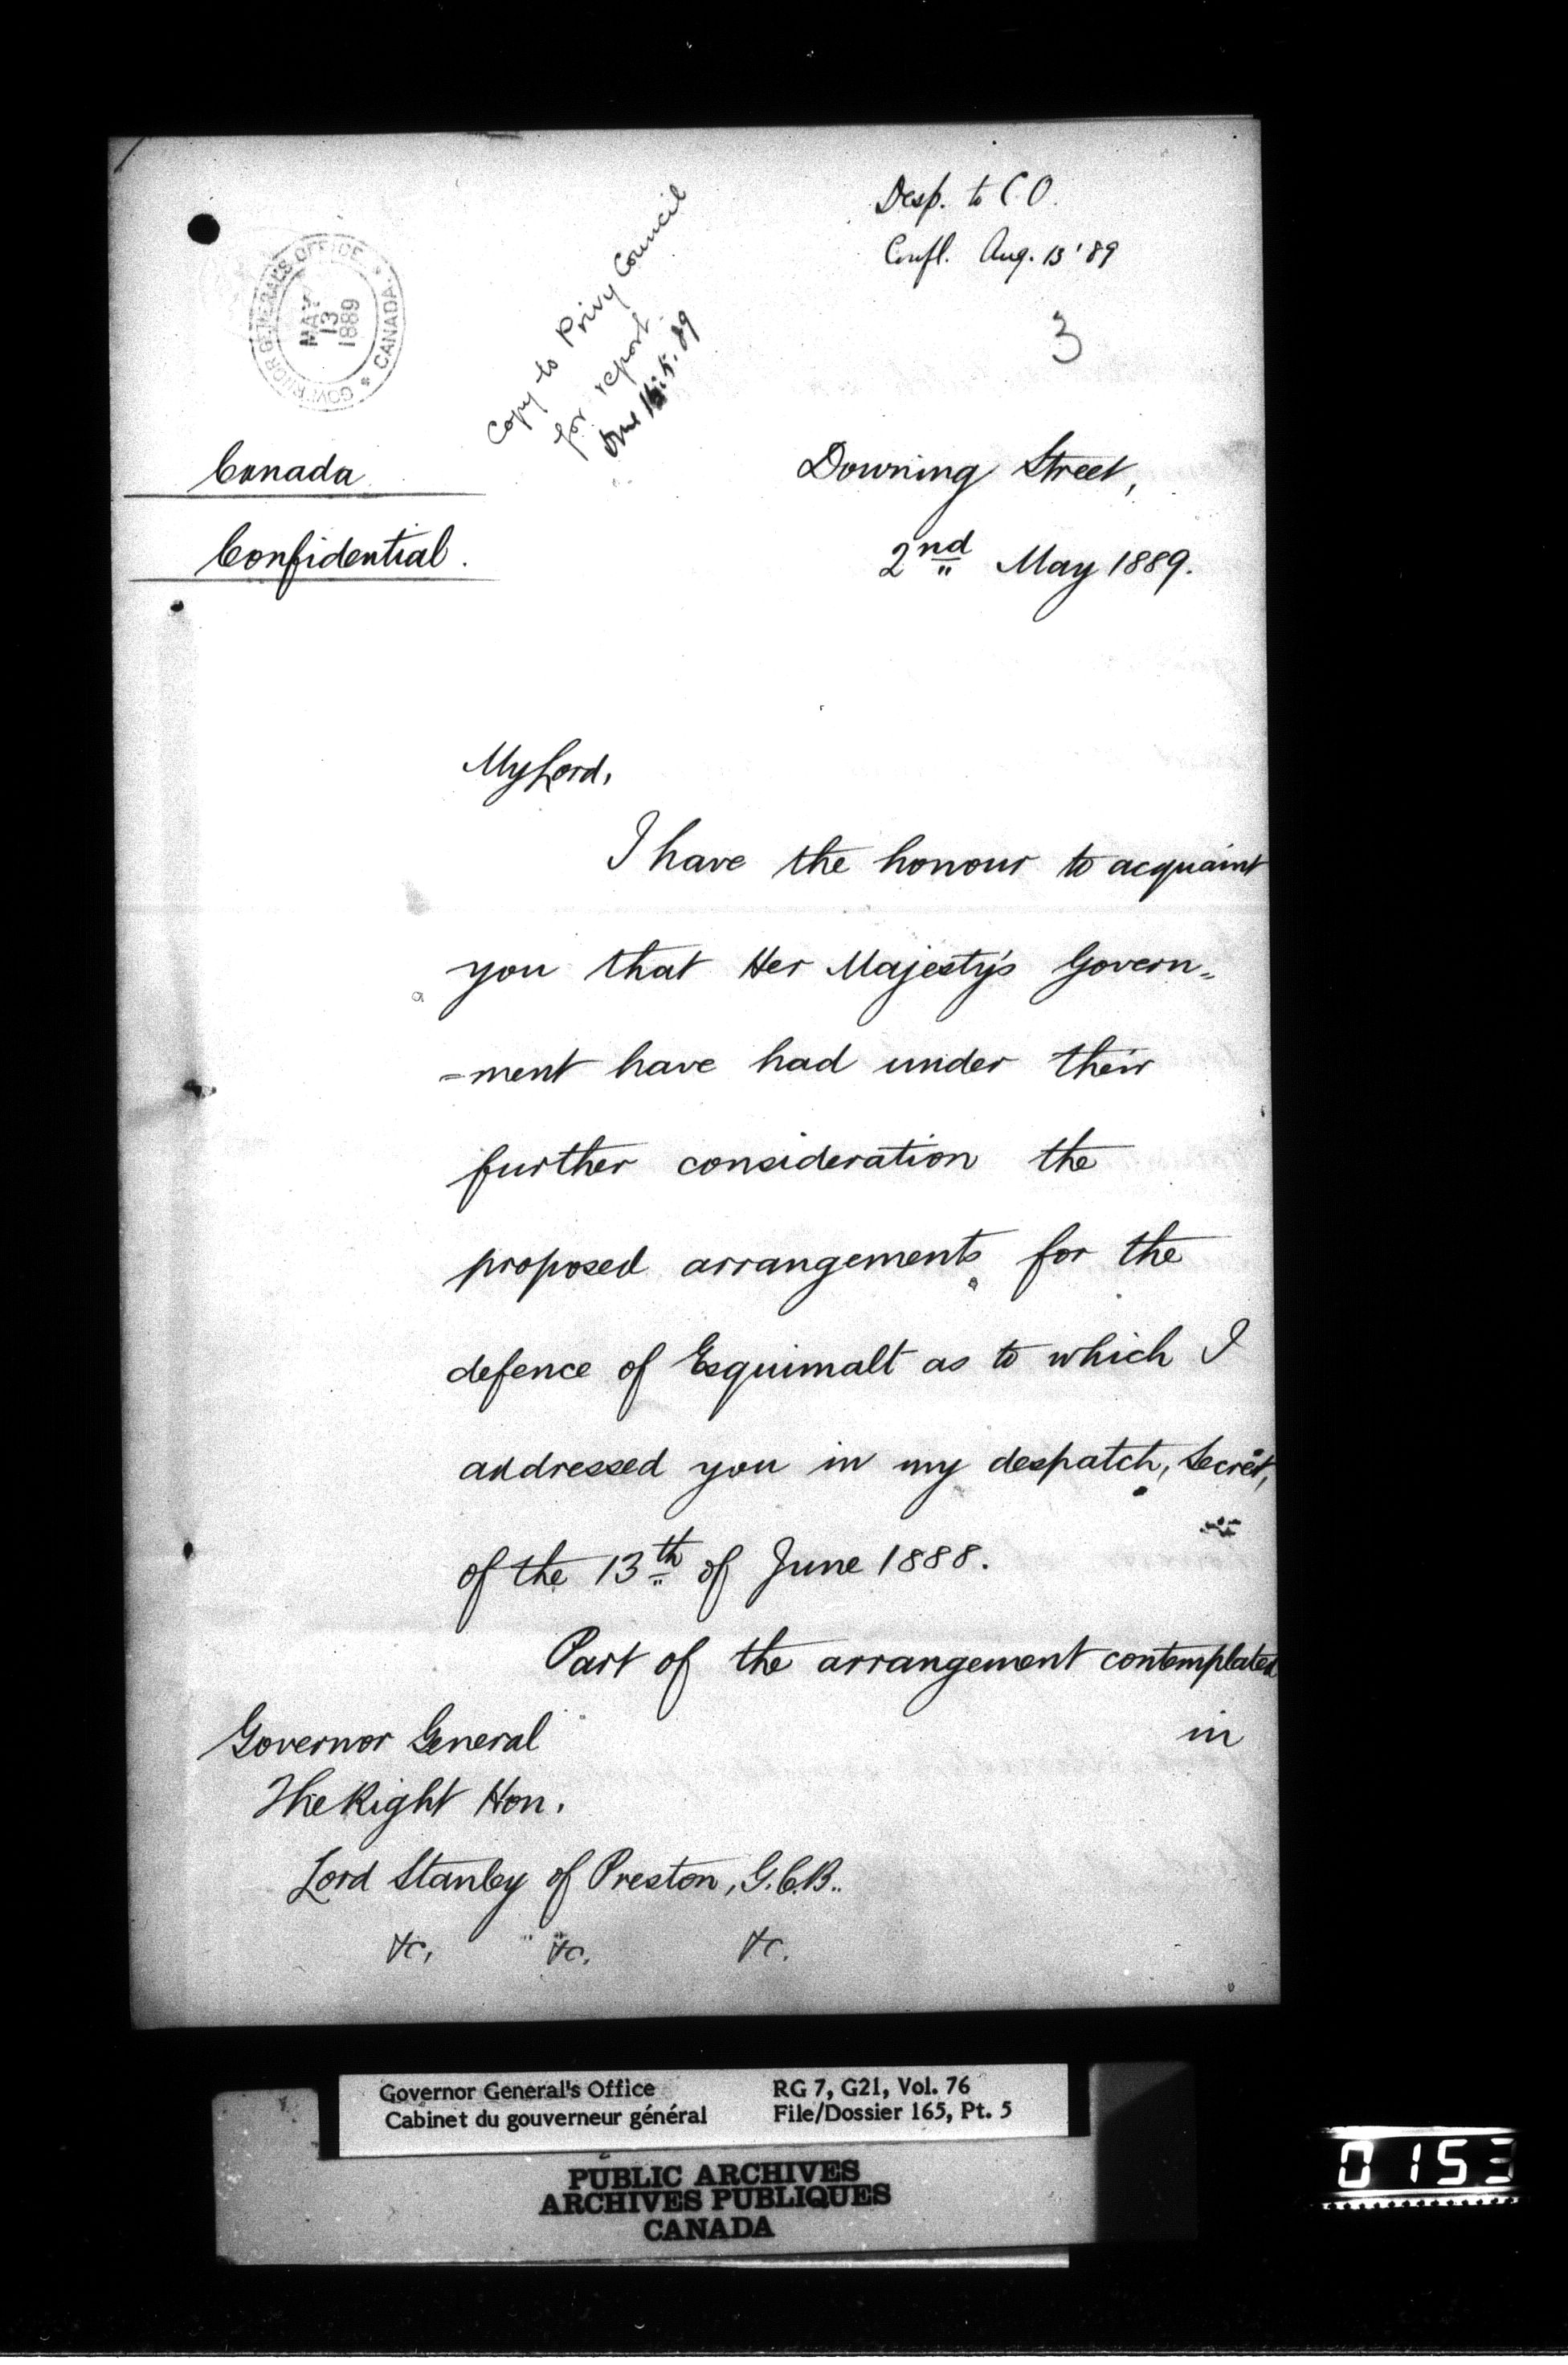 Desp. to C.O.
Confl. Aug. 13 '89
3
GOVERNOR GENERAL'S OFFICE * CANADA *
MAY
13
1889
Copy to Privy Council
for report.
16.5.89
Canada
Confidential.
Downing Street,
2nd May 1889.
My Lord,
I have the honour to acquaint
you that Her Majesty's Govern=
=ment have had under their
further consideration the
proposed arrangements for the
defence of Esquimalt as to which I
addressed you in my despatch, Secret,
of the 13th of June 1888.
Part of the arrangement contemplated
in
Governor General
The Right Hon.
Lord Stanley of Preston, G.C.B.
&c. &c. &c.
Governor General's Office
Cabinet du gouverneur général
RG 7, G21, Vol. 76
File/Dossier 165, Pt. 5
PUBLIC ARCHIVES
ARCHIVES PUBLIQUES
CANADA
0153